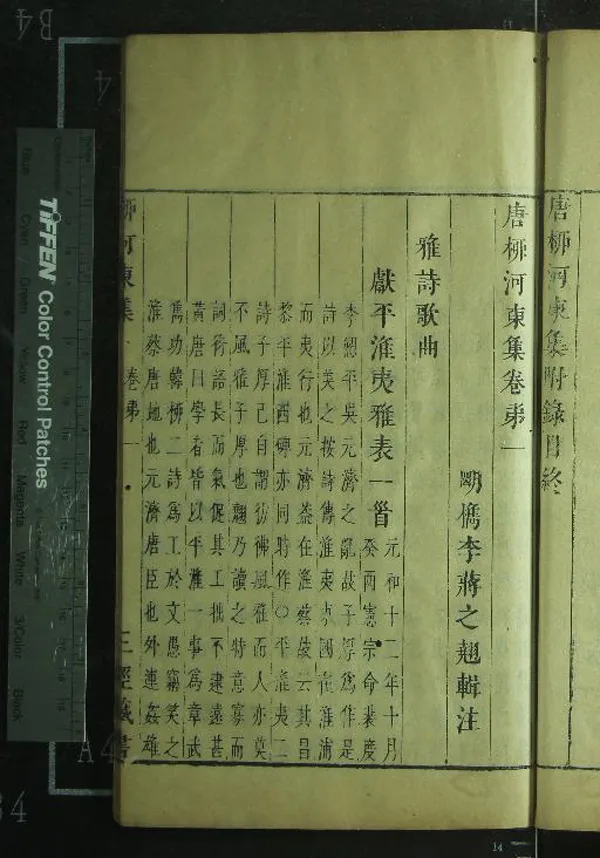 唐柳河東集附錄目終
唐柳河東集卷第一
明檇李蔣之翹輯注
雅詩歌曲
獻平淮夷雅表一首
元和十二年十月
癸酉憲宗命裴度
李愬平吳元濟之亂故子厚為作是
詩以美之按詩傳淮夷
國在淮浦
而夷行也元濟蓋在淮蔡故云其昌
黎平淮西碑亦同時作○平淮夷二
詩子厚已自謂彷彿風雅而人亦莫
不風雅子厚也翹乃讀之特意寡而
詞衍語長而氣促其工拙不逮遠甚
黃唐曰學者皆以平淮一事為章武
雋功韓柳二詩為工於文愚竊笑之
淮蔡唐地也元濟唐臣也外連姦雄
柳河東集
卷第一
三徑藏書
TIFFEN Color Control Patches
Blue
Cyan
Green
Yellow
Red
Magenta
White
3/Color
Black
B4
A4
14